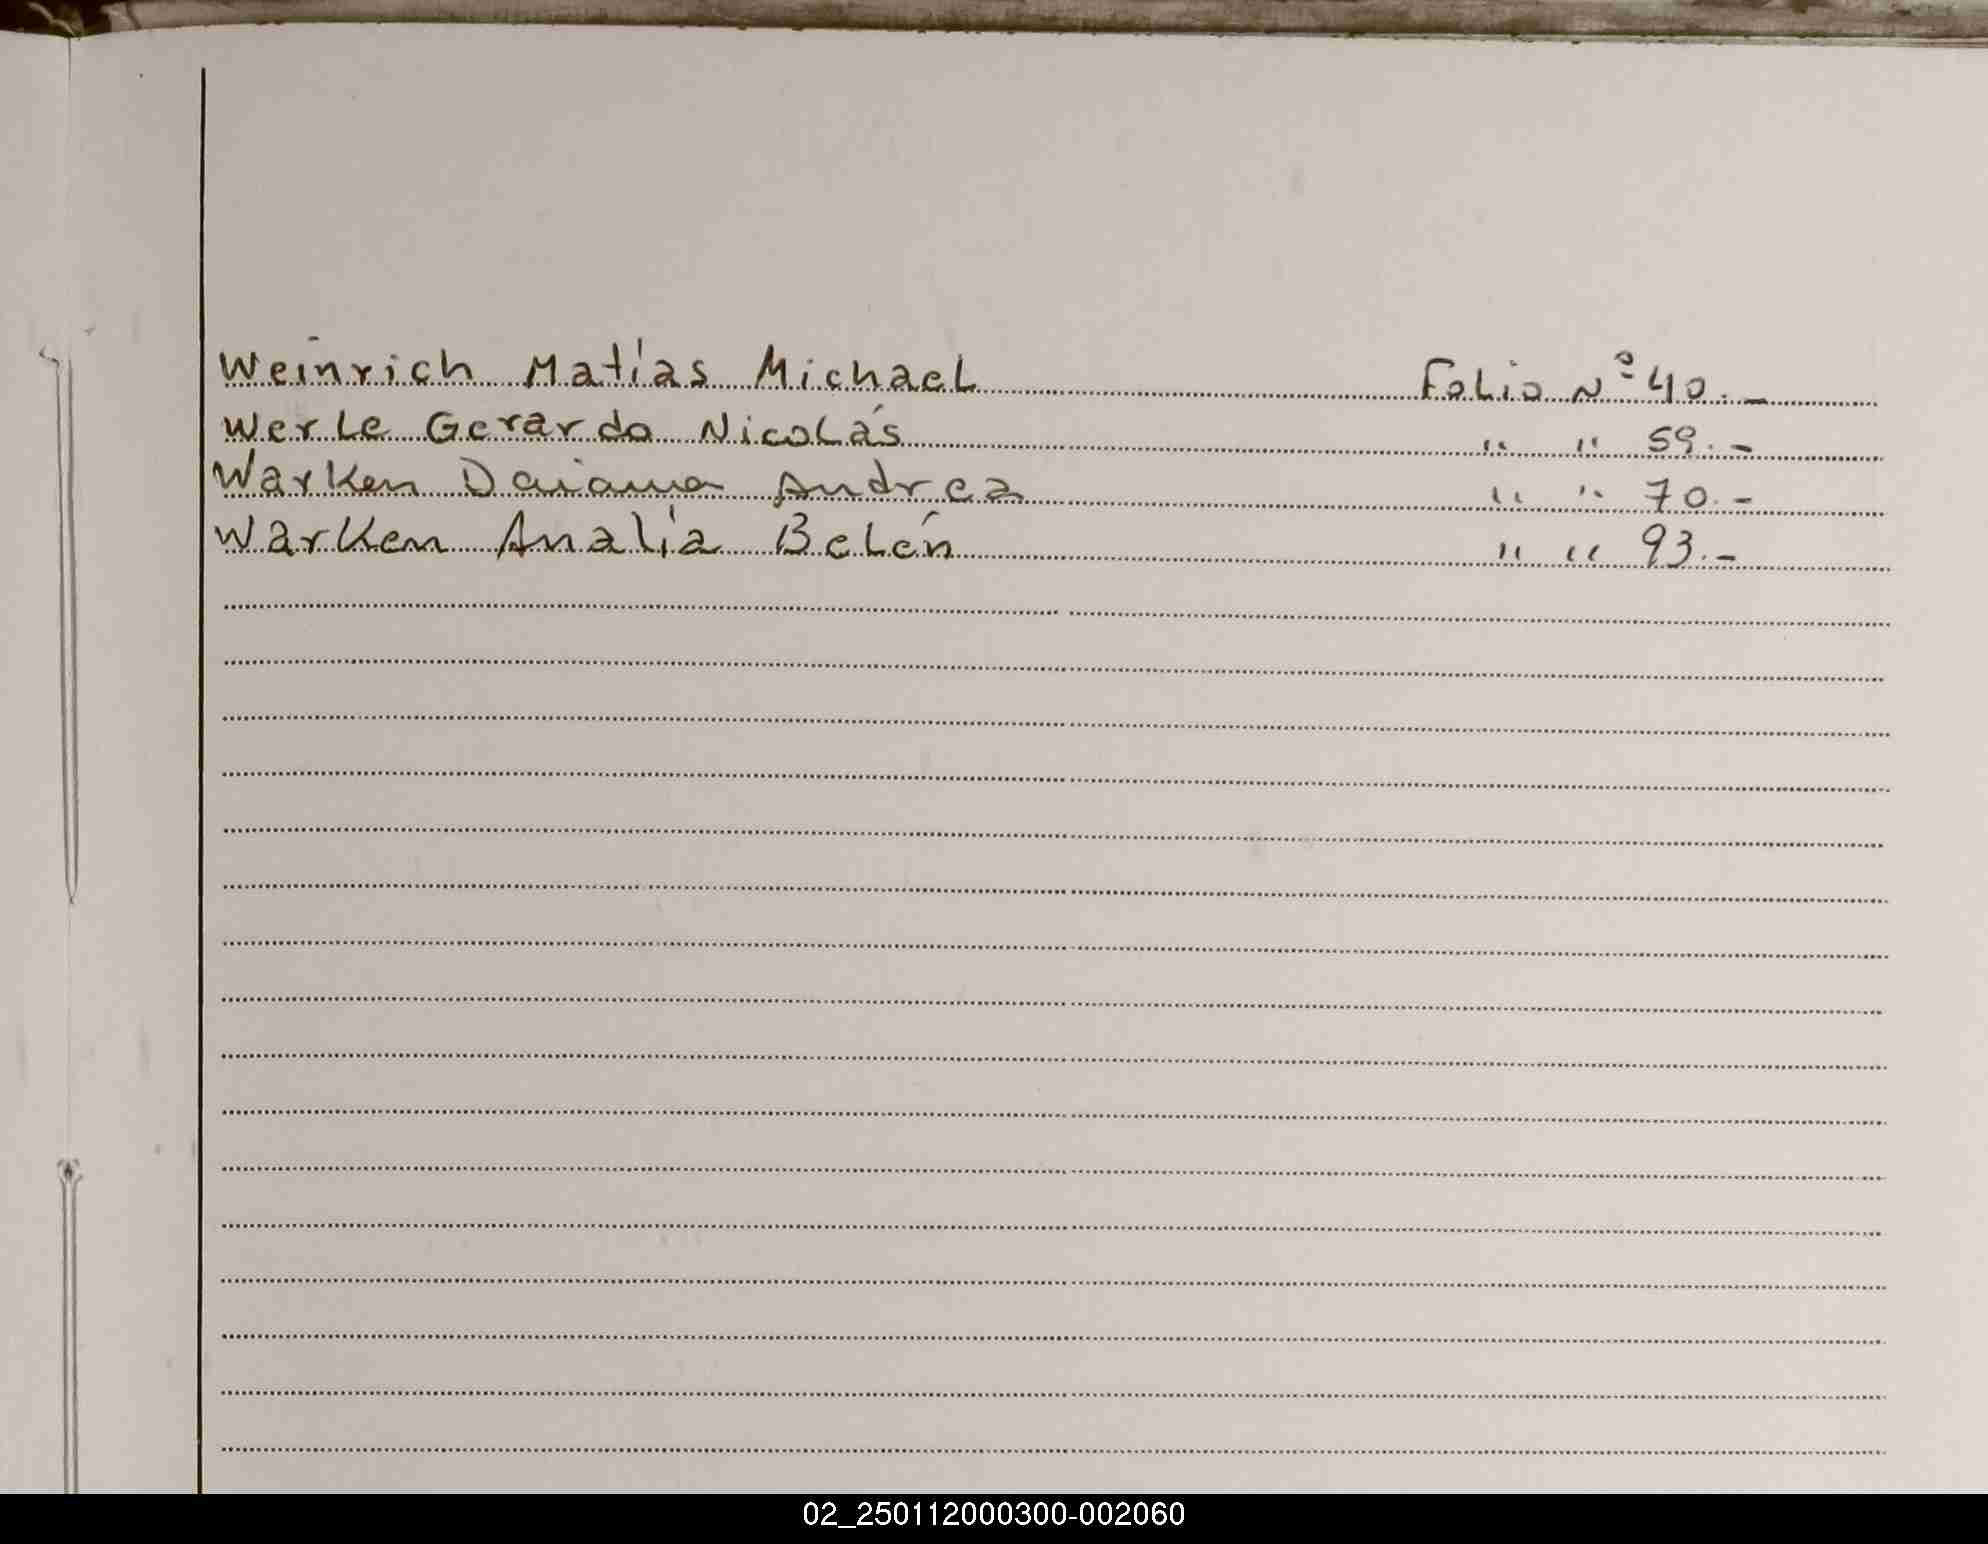 Weinrich Matías Michael Folio Nº 40.-
Werle Gerardo Nicolás " " 59.-
Warken Daiana Andrea " " 70.-
Warken Analía Belén " " 93.-
02_250112000300-002060